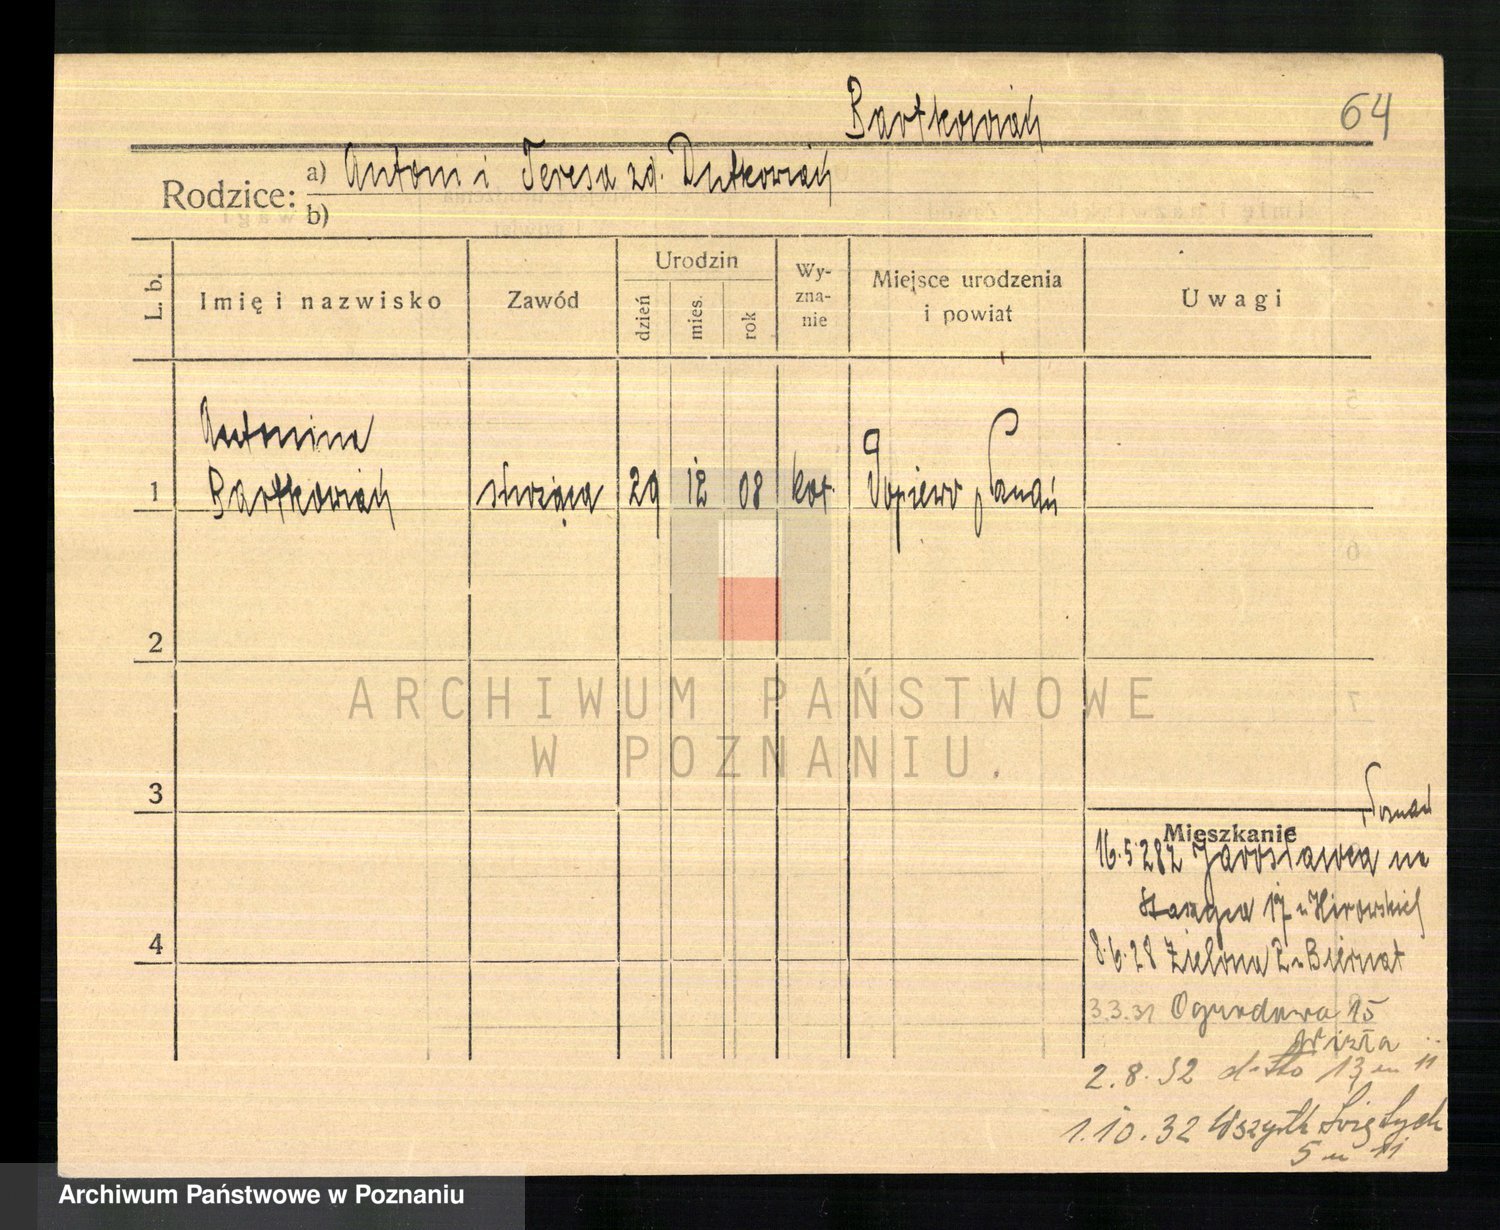 Bartkowiak
64
Rodzice: a) Antoni i Teresa zd. Dutkowiak
b)
L. b.
Imię i nazwisko
Zawód
Urodzin
dzień
mies.
rok
Wy-
zna-
nie
Miejsce urodzenia
i powiat
Uwagi
Antonina
1 Bartkowiak służąca 29 12 08 kat. Popiewo,
2
ARCHIWUM PAŃSTWOWE
W POZNANIU.
3
Poznań
Mieszkanie
16.5.282 Jarosławca
17 u
8.6.28 Zielona 2 u Biernat
3.3.31 Ogrodowa 15
2.8.32 dtto 13 m 11
1.10.32 Wszystk Świętych
5 m 11
Archiwum Państwowe w Poznaniu